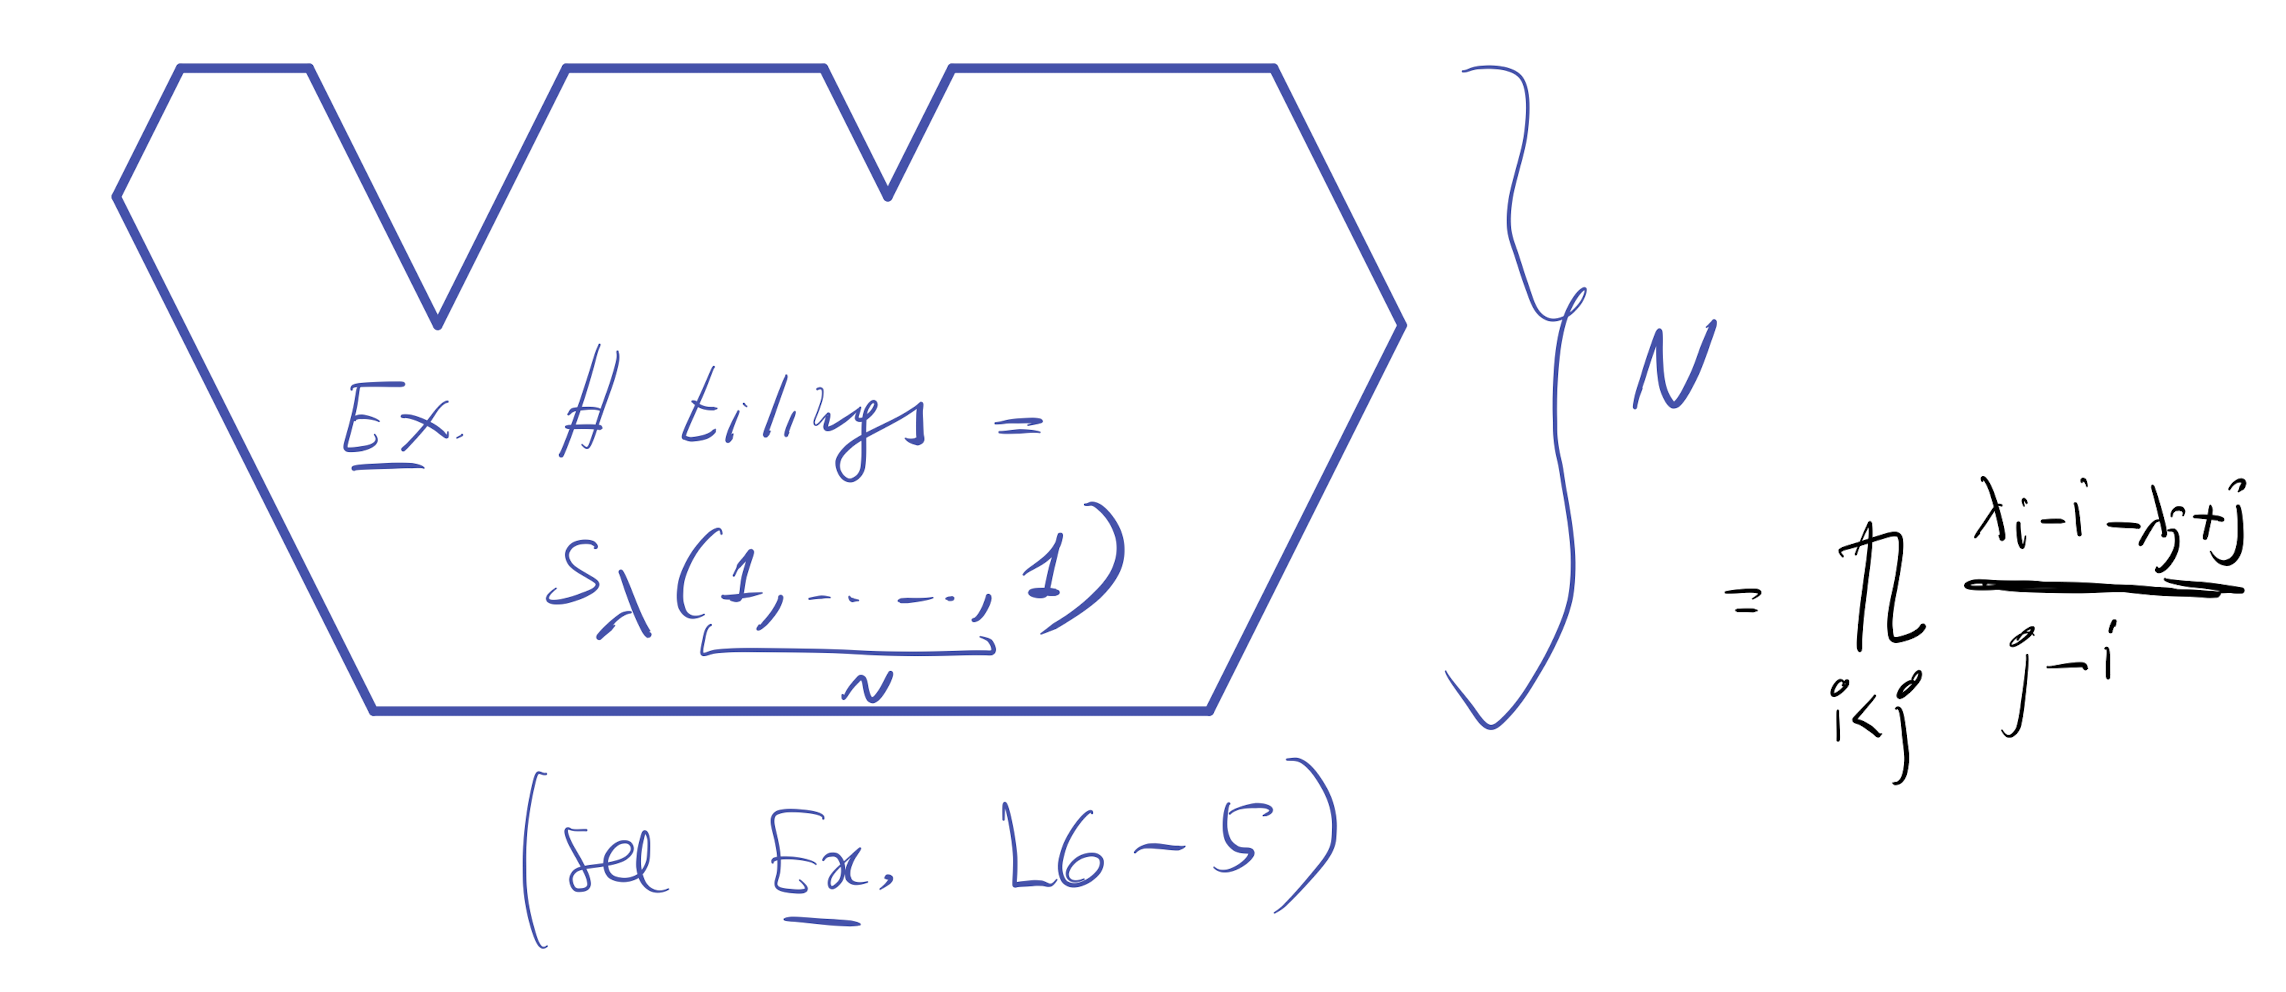 Ex. # tilings =
S_λ (1, ..., 1)
N
N
= ∏_{i<j} \frac{λ_i - i - λ_j + j}{j - i}
(see Ex. L6-5)